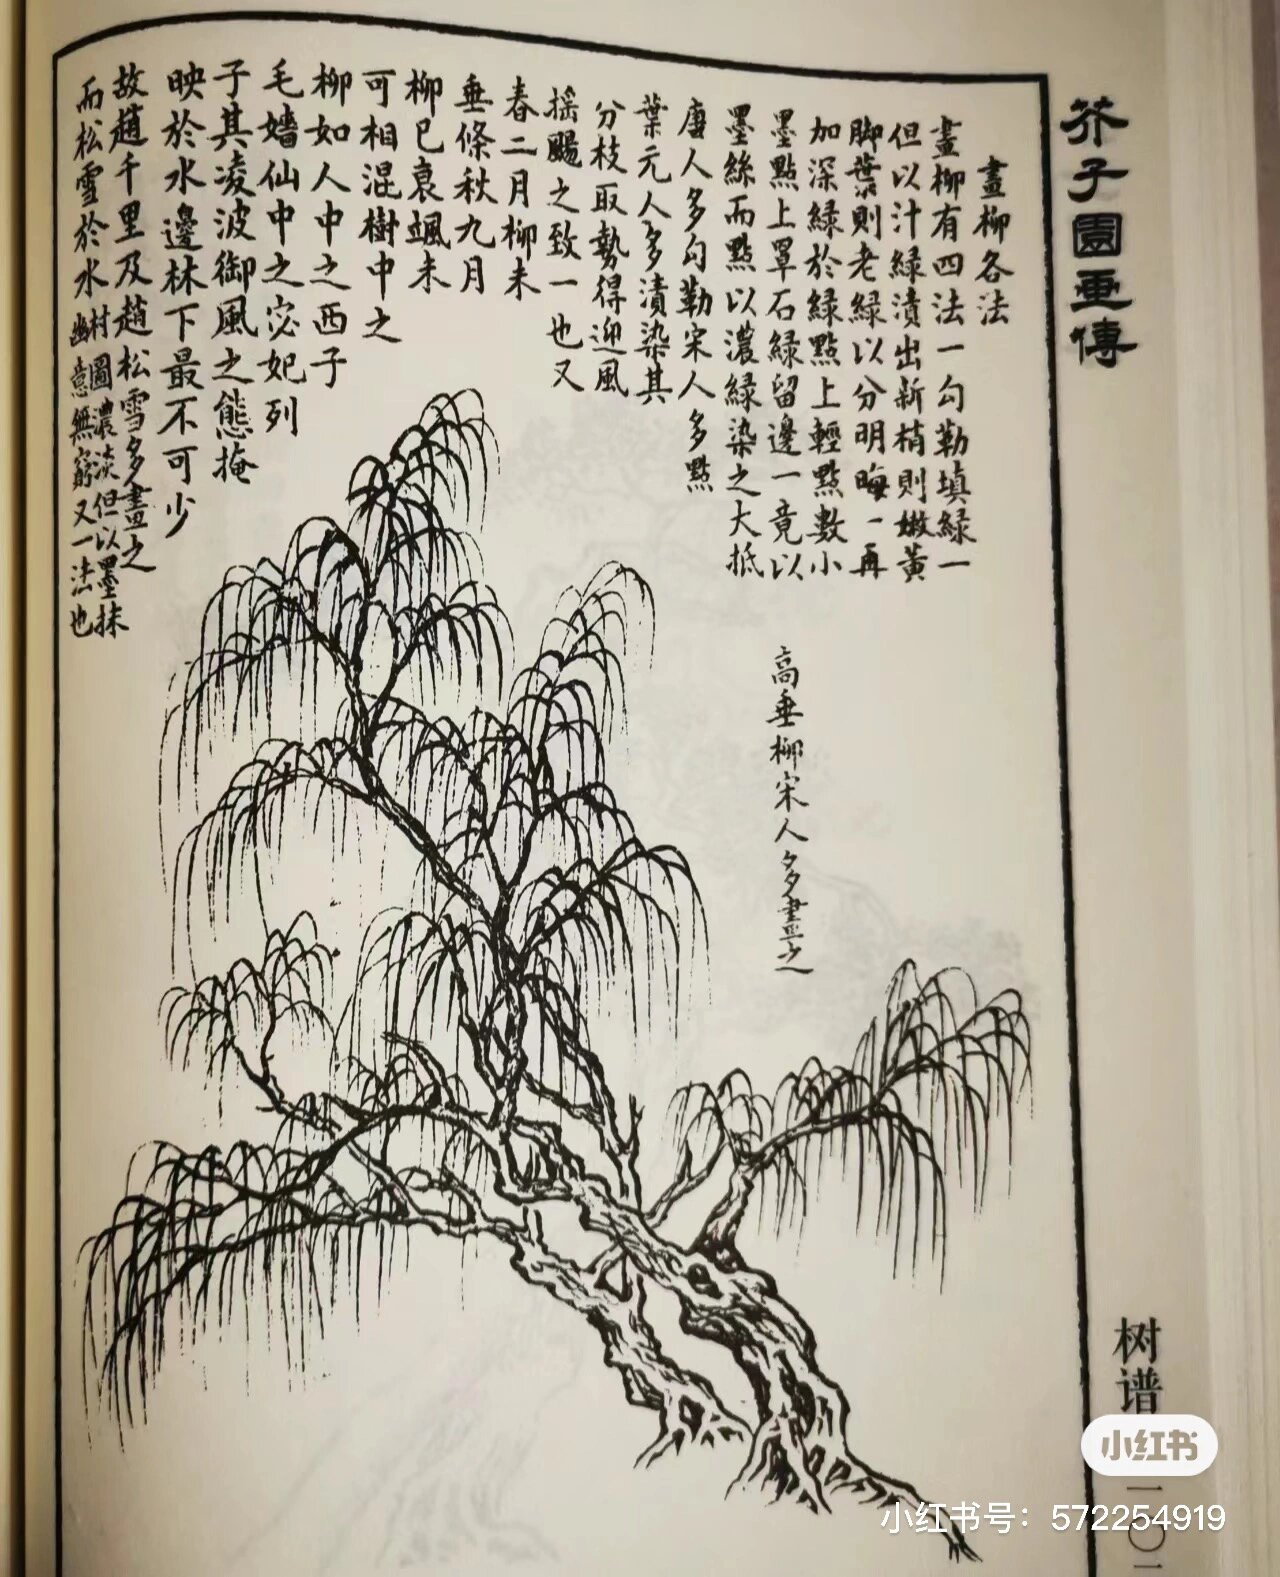 芥子園畫傳
畫柳各法
畫柳有四法一勾勒填綠一
但以汁綠漬出新梢則嫩黃
脚葉則老綠以分明晦一再
加深綠於綠點上輕點數小
墨點上罩石綠留邊一竟以
墨絲而點以濃綠染之大抵
唐人多勾勒宋人多點
葉元人多漬染其
分枝取勢得迎風
搖颺之致一也又
春二月柳未
垂條秋九月
柳已衰颯未
可相混樹中之
柳如人中之西子
毛嬙仙中之宓妃列
子其凌波御風之態掩
映於水邊林下最不可少
故趙千里及趙松雪多畫之
而松雪於水村圖濃淡但以墨抹
幽意無窮又一法也
高垂柳宋人多畫之
树谱
小红书
小红书号：572254919